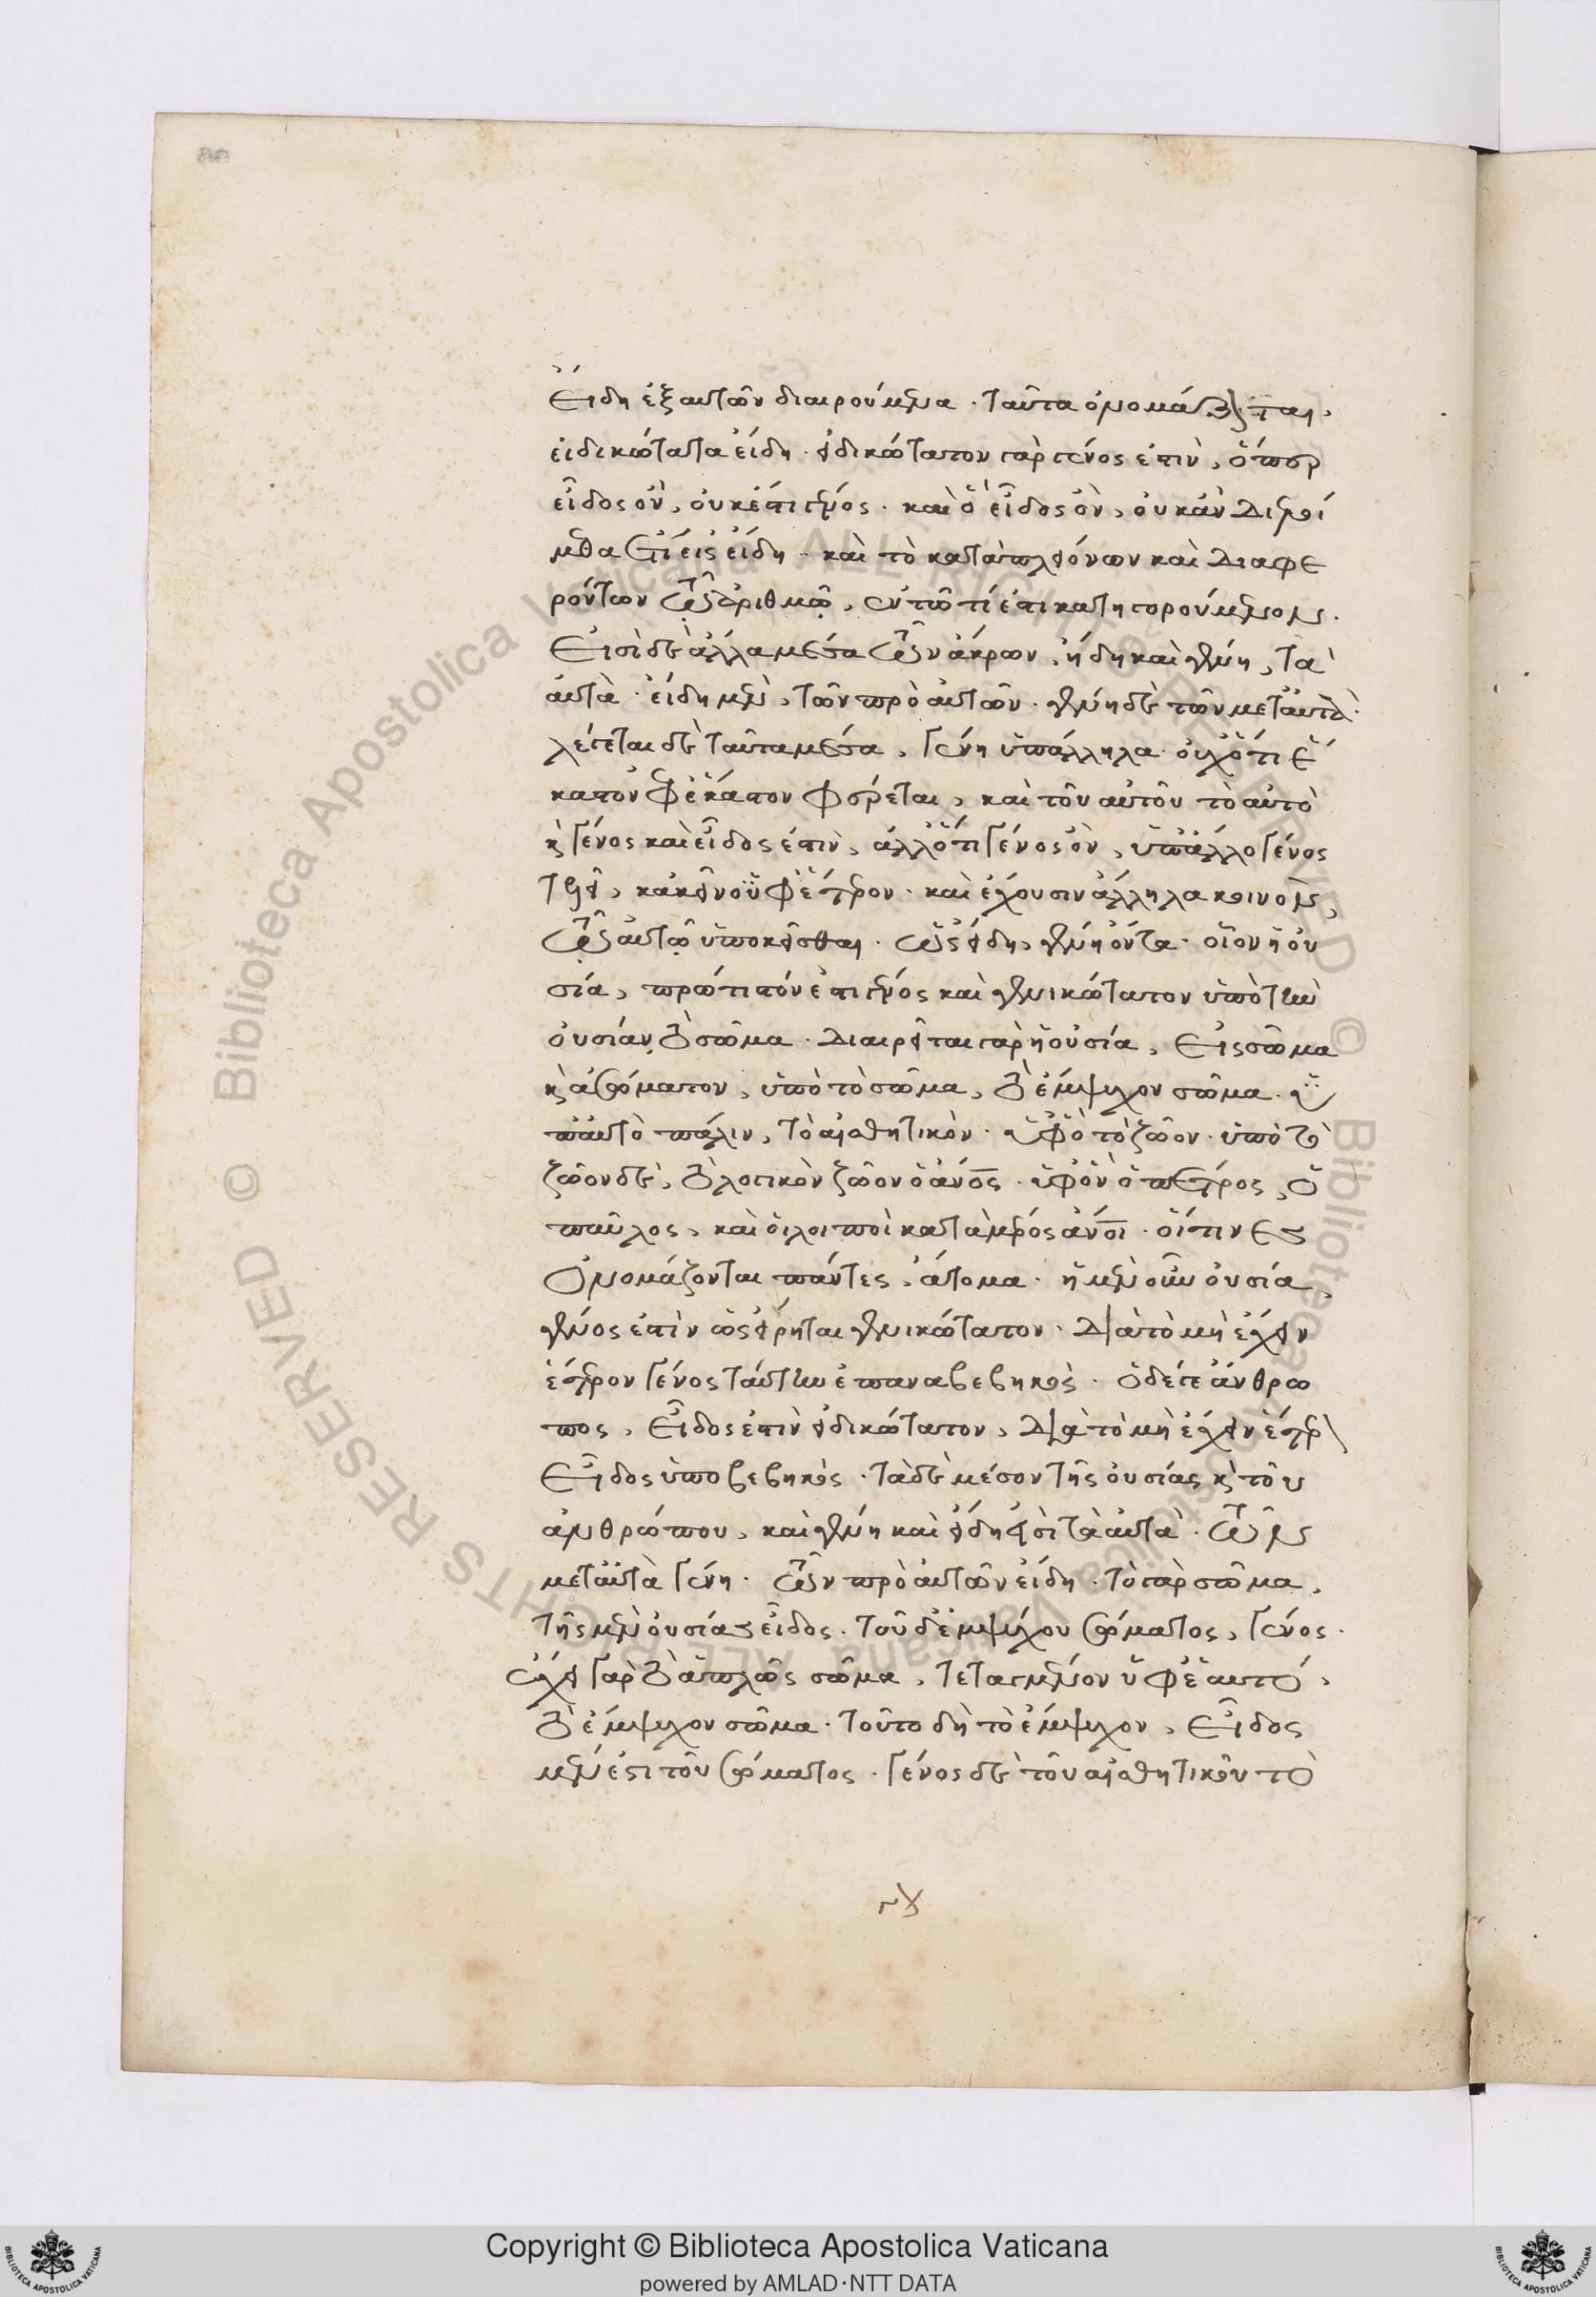 εἴδη ἐξ αὐτῶν διαιρούμενα. ταῦτα ὀνομάζεται,
εἰδικώτατα εἴδη. εἰδικώτατον γάρ γένος ἐστὶν, ὅπερ
εἶδος ὂν, οὐκ ἔστι γένος. καὶ ὃ εἶδος ὂν, οὐκ ἂν διελοί
μεθα ἔτι εἰς εἴδη. καὶ τὸ κατὰ πλειόνων καὶ διαφε
ρόντων τῷ ἀριθμῷ, ἐν τῷ τί ἐστι κατηγορούμενον.
Εἰσὶ δὲ ἄλλα μέσα τῶν ἄκρων, ἤδη καὶ γένη, τὰ
αὐτὰ. εἴδη μὲν, τῶν πρὸ αὐτῶν. γένη δὲ τῶν μετ' αὐτὰ.
λέγεται δὲ ταῦτα μέσα, γένη ὑπάλληλα. οὐχ ὅτι ἕ
καστον ὑφ' ἕκαστον φέρεται, καὶ τοῦ αὐτοῦ τὸ αὐτὸ
κ γένος καὶ εἶδος ἐστιν, ἀλλ' ὅτι γένος ὂν, ὑπ' ἄλλο γένος
κἀκεῖνο ὑφ' ἕτερον. καὶ ἔχουσιν ἄλληλα κοινὸν,
τῷ αὐτῷ ὑποκεῖσθαι. ὡς εἴδη, γένη ὄντα. οἷον ἡ οὐ
σία, πρώτιστόν ἐστι γένος καὶ γενικώτατον ὑπὸ τὴν
οὐσίαν τὸ σῶμα. διαιρεῖται γὰρ ἡ οὐσία, εἰς σῶμα
κ ἀσώματον, ὑπὸ τὸ σῶμα, τὸ ἔμψυχον σῶμα. ὑ
π' αὐτὸ πάλιν, τὸ αἰσθητικὸν. ὑφ' ὃ τὸ ζῶον. ὑπὸ τὸ
ζῶον δὲ, τὸ λογικὸν ζῶον ὁ ἄνος. ὑφ' ὃν ὁ πέτρος, ὁ
παῦλος, καὶ οἱ λοιποὶ κατὰ μέρος ἄνοι. οἵτινες
ὀνομάζονται πάντες, ἄτομα. ἡ μὲν οὖν οὐσία,
γένος ἐστὶν ὡς εἴρηται γενικώτατον. διὰ τὸ μὴ ἔχειν
ἕτερον γένος ταύτην ἐπαναβεβηκὸς. ὁ δέ γε ἄνθρω
πος, εἶδος ἐστὶν εἰδικώτατον, διὰ τὸ μὴ ἔχειν ἕτερον
εἶδος ὑποβεβηκὸς. τὰ δὲ μέσον τῆς οὐσίας κ τοῦ
ἀνθρώπου, καὶ γένη καὶ εἴδη εἰσὶ τὰ αὐτὰ. τῶν
μετ' αὐτὰ γένη. τῶν πρὸ αὐτῶν εἴδη. τὸ γὰρ σῶμα,
τῆς μὲν οὐσίας εἶδος. τοῦ δ' ἐμψύχου σώματος, γένος.
ἔχει γὰρ τὸ ἁπλῶς σῶμα, τεταγμένον ὑφ' ἑαυτὸ,
τὸ ἔμψυχον σῶμα. τοῦτο δὴ τὸ ἔμψυχον, εἶδος
μέν ἐστι τοῦ σώματος. γένος δὲ τοῦ αἰσθητικοῦ τὸ